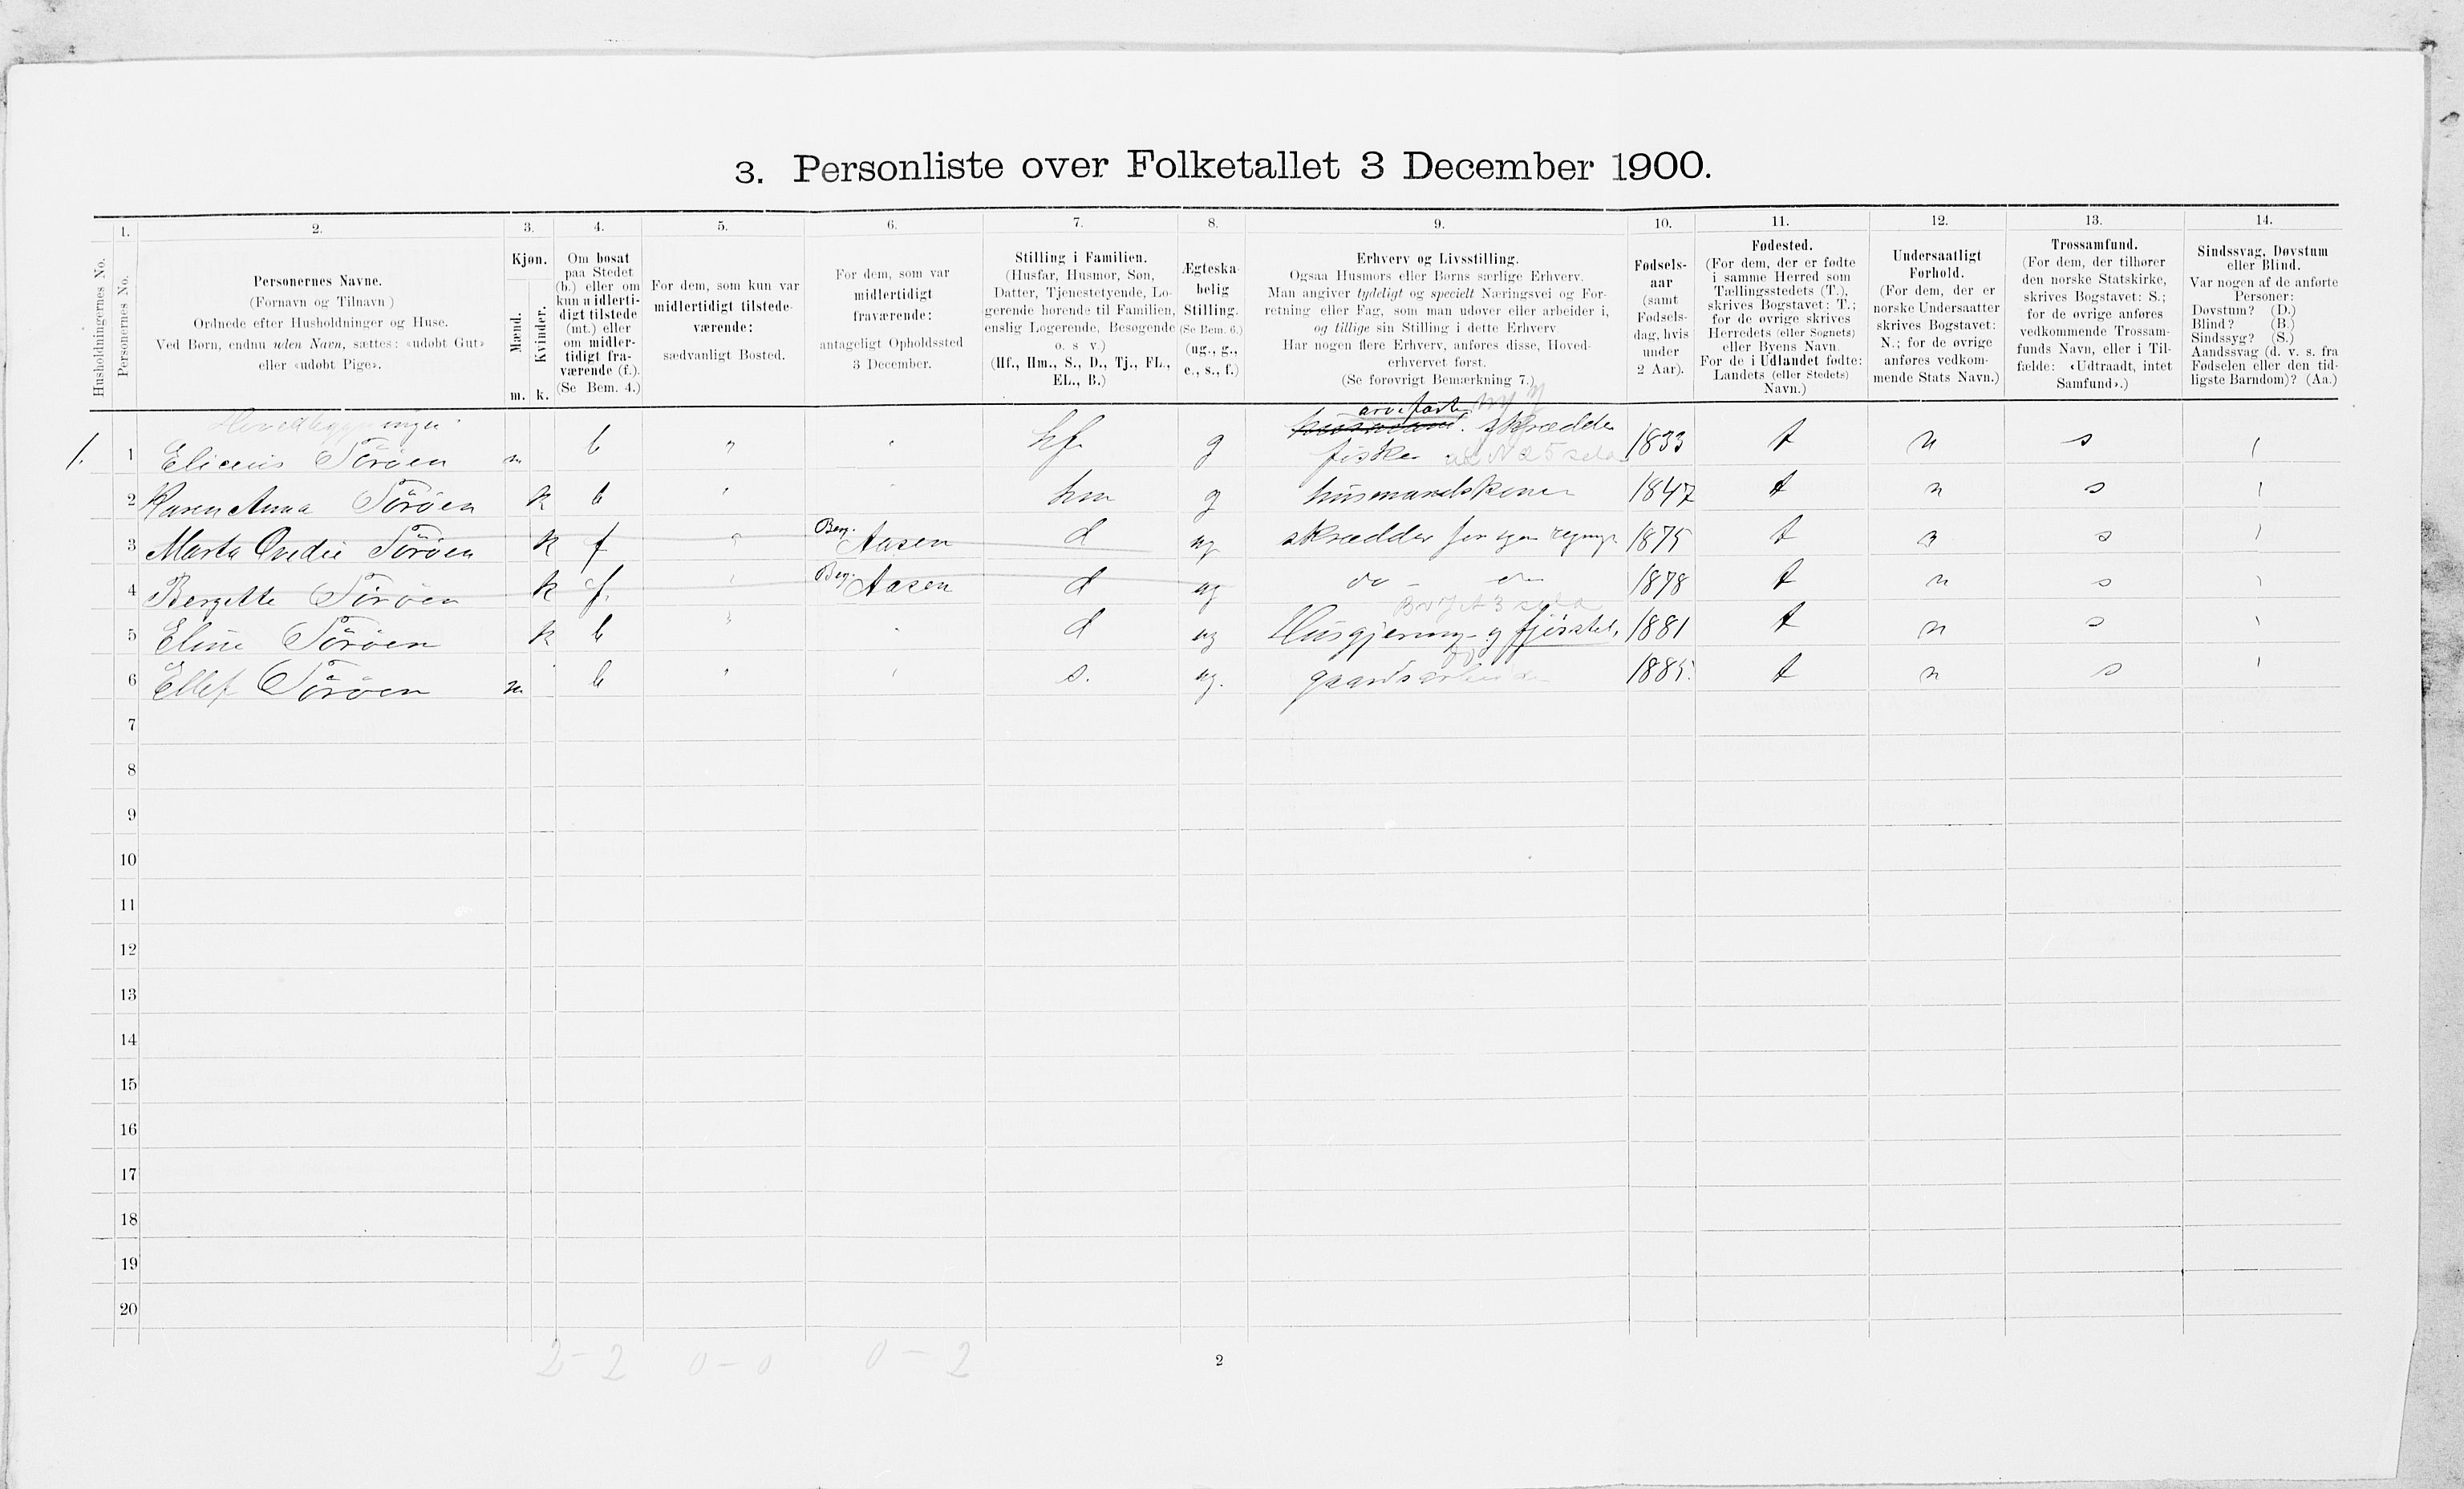 3. Personliste over Folketallet 3 December 1900.
1. 2. 3. 4. 5. 6. 7. 8. 9. 10. 11. 12. 13. 14.
Husholdningernes No.
Personernes No.
Personernes Navne.
(Fornavn og Tilnavn.)
Ordnede efter Husholdninger og Huse.
Ved Børn, endnu uden Navn, sættes: «udøbt Gut»
eller «udøbt Pige».
Kjøn.
Mænd.
Kvinder.
m. k.
Om bosat
paa Stedet
(b.) eller om
kun midlerti-
digt tilstede
(mt.) eller
om midler-
tidigt fra-
værende (f.).
(Se Bem. 4.)
For dem, som kun var
midlertidigt tilstede-
værende:
sædvanligt Bosted.
For dem, som var
midlertidigt
fraværende:
antageligt Opholdssted
3 December.
Stilling i Familien.
(Husfar, Husmor, Søn,
Datter, Tjenestetyende, Lo-
gerende hørende til Familien,
enslig Logerende, Besøgende
o. s. v.)
(Hf., Hm., S., D., Tj., FL.,
EL., B.)
Ægteska-
belig
Stilling.
(Se Bem. 6.)
(ug., g.,
e., s., f.)
Erhverv og Livsstilling.
Ogsaa Husmors eller Børns særlige Erhverv.
Man angiver tydeligt og specielt Næringsvei og For-
retning eller Fag, som man udøver eller arbeider i,
og tillige sin Stilling i dette Erhverv.
Har nogen flere Erhverv, anføres disse, Hoved-
erhvervet først.
(Se forøvrigt Bemærkning 7.)
Fødsels-
aar
(samt
Fødsels-
dag, hvis
under
2 Aar).
Fødested.
(For dem, der er fødte
i samme Herred som
Tællingsstedets (T.),
skrives Bogstavet: T.;
for de øvrige skrives
Herredets (eller Sognets)
eller Byens Navn.
For de i Udlandet fødte:
Landets (eller Stedets)
Navn.)
Undersaatligt
Forhold.
(For dem, der er
norske Undersaatter
skrives Bogstavet:
N.; for de øvrige
anføres vedkom-
mende Stats Navn.)
Trossamfund.
(For dem, der tilhører
den norske Statskirke,
skrives Bogstavet: S.;
for de øvrige anføres
vedkommende Trossam-
funds Navn, eller i Til-
fælde: «Udtraadt, intet
Samfund».)
Sindssvag, Døvstum
eller Blind.
Var nogen af de anførte
Personer:
Døvstum? (D.)
Blind? (B.)
Sindssyg? (S.)
Aandssvag (d. v. s. fra
Fødselen eller den tid-
ligste Barndom)? (Aa.)
husmand. skrædder
1. 1 Eliceus Töröen m b " " hf. g fisker 1833 t n s
2 Karen Anna Töröen k b " " hm g husmandskone 1847 t n s
3 Marta Ovedie Töröen k f " Berg. Aasen d ug skrædder for egen regning 1875 t n s
4 Bergitte Töröen k f. Berg. Aasen d ug do - do 1878 t n s
5 Eline Töröen k b " d ug Husgjerning og fjösstel. 1881 t n s
6 Ellef Töröen m b " s. ug. gaardsarbeide 1885. t n s
7
8
9
10
11
12
13
14
15
16
17
18
19
20
2 - 2 0 - 0 0 - 2
2